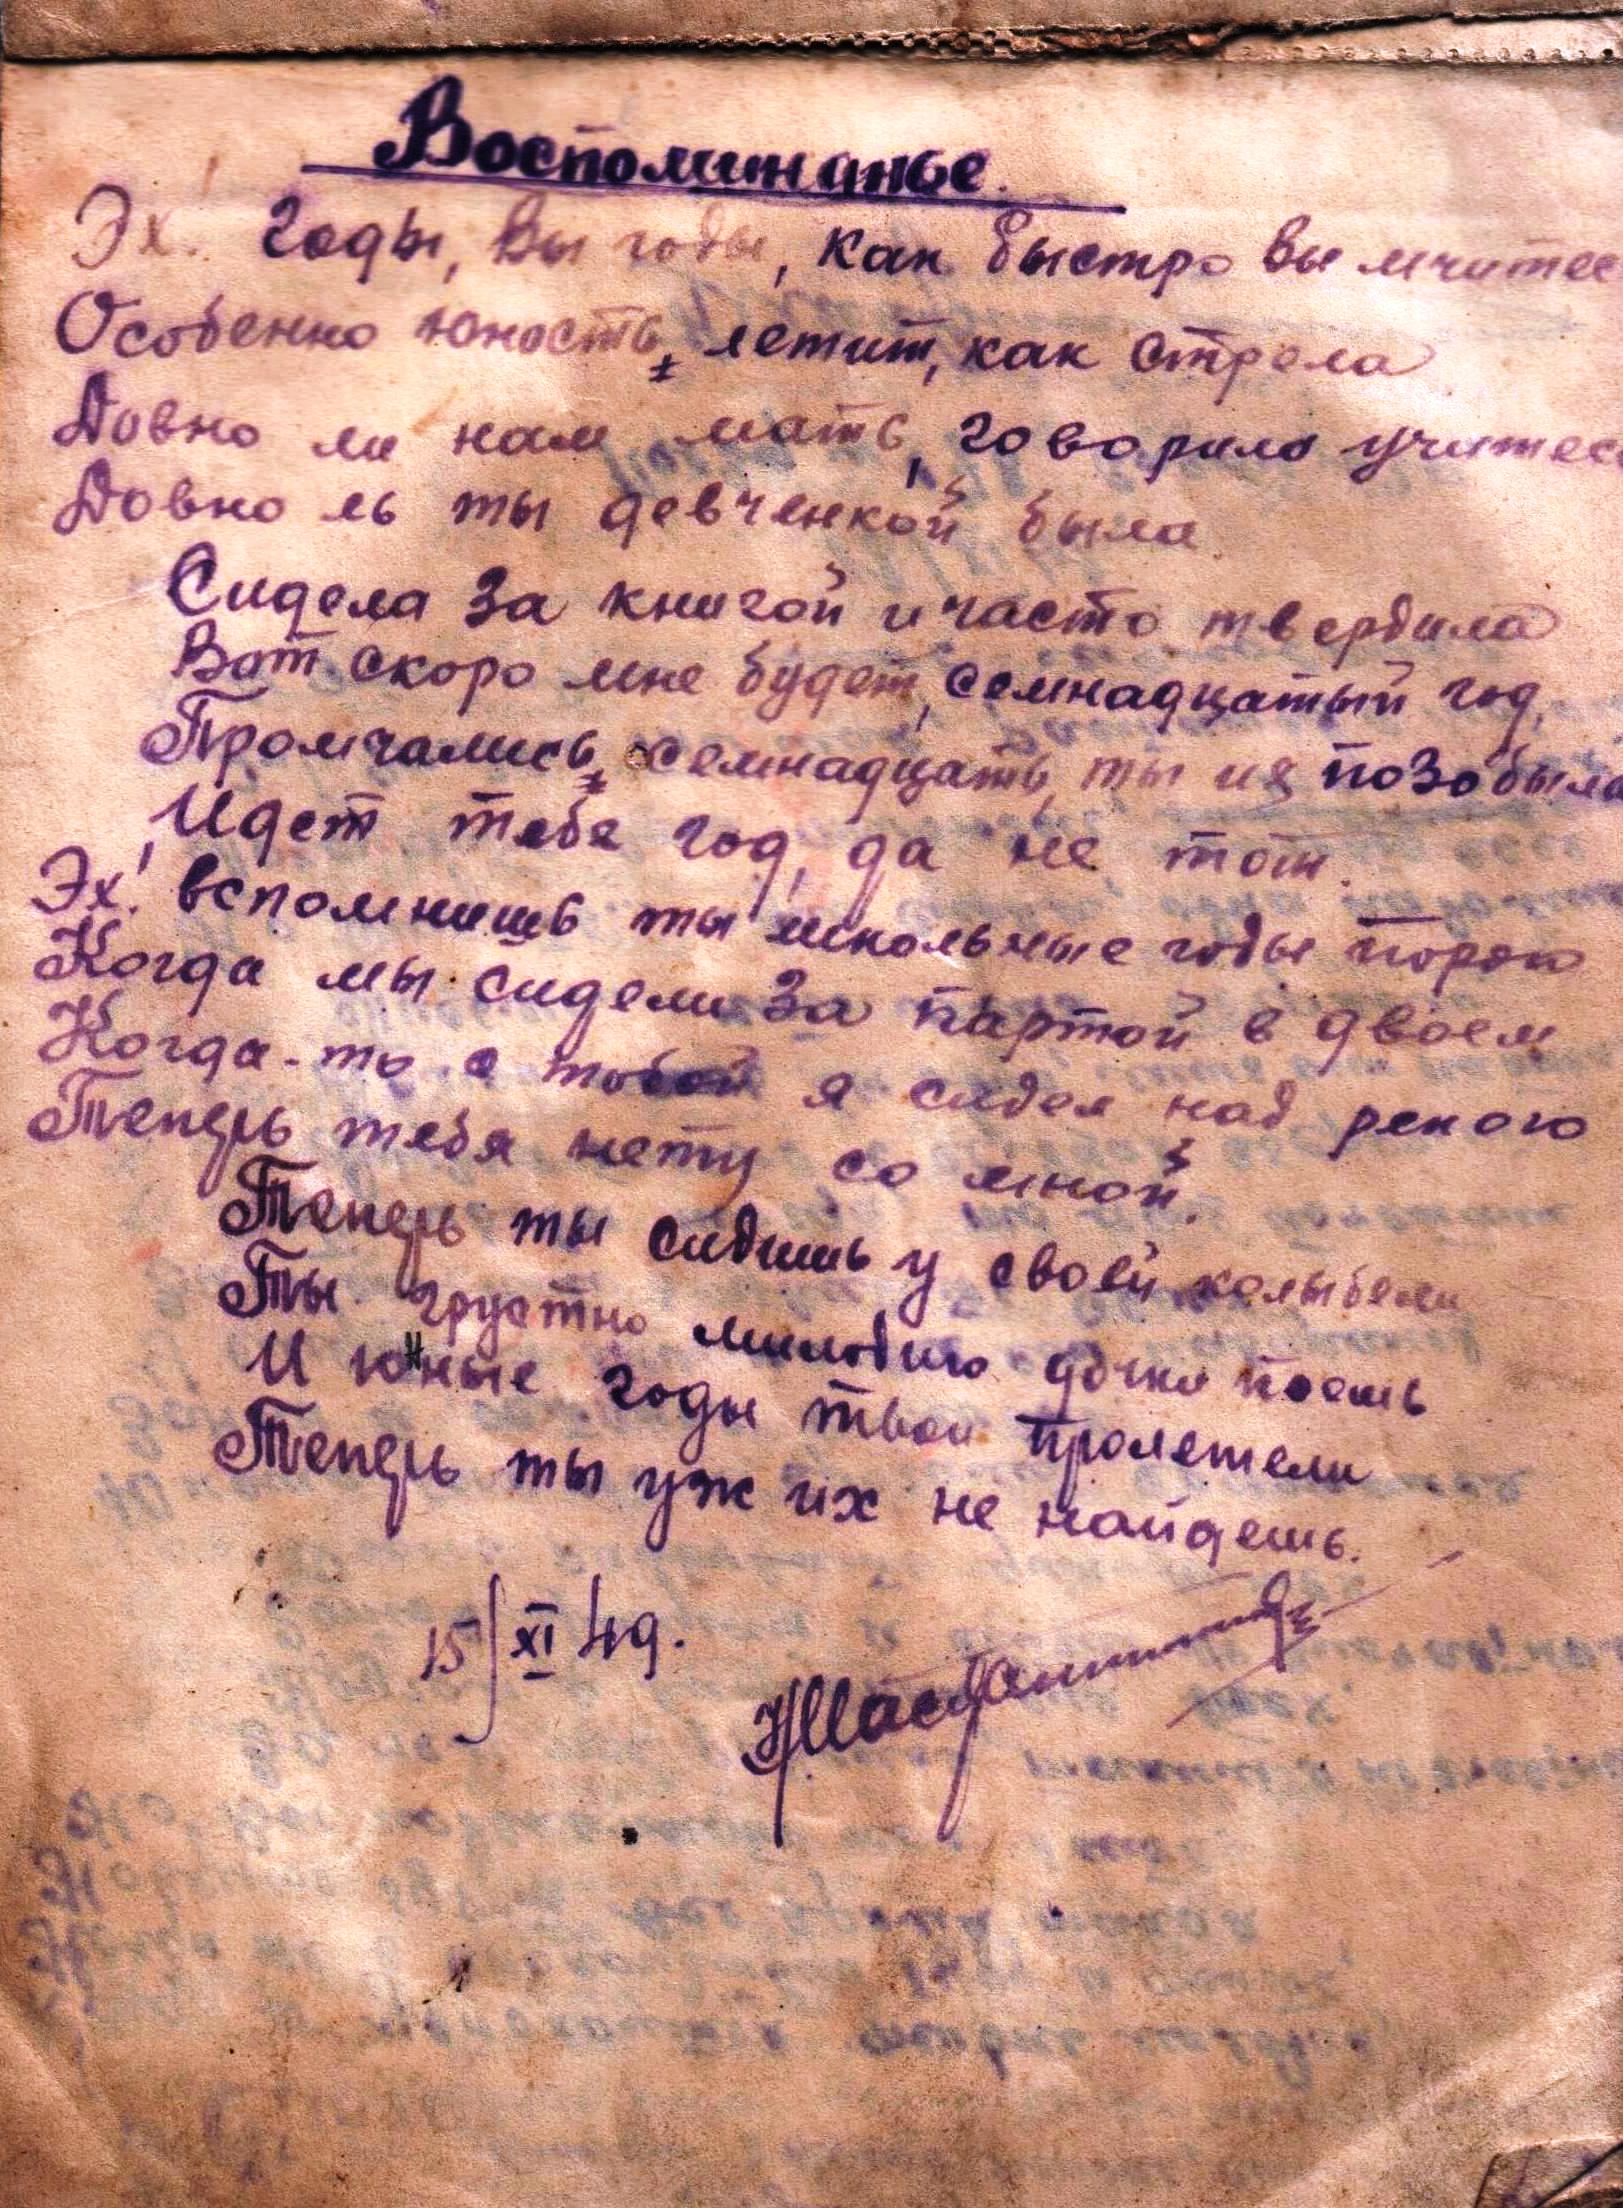 Воспоминанье.
Эх! Годы, Вы годы, как быстро Вы мчитес
Особенно юность, летит, как стрела
Довно ли нам мать, говорила учитес
Довно ль ты девченкой была.
Сидела за книгой и часто твердила
Вот скоро мне будет, семнадцатый год,
Промчались, семнадцать, ты их позобыла
Идет тебя год, да не тот.
Эх! вспомнишь ты школьные годы порою
Когда мы сидели за партой в двоем
Когда-то с тобой я сидел над рекою
Теперь тебя нету со мной.
Теперь ты сидишь у своей колыбели
Ты грустно дочки поешь
И юные годы твои пролетели
Теперь ты уж их не найдешь.
15/XI 49.